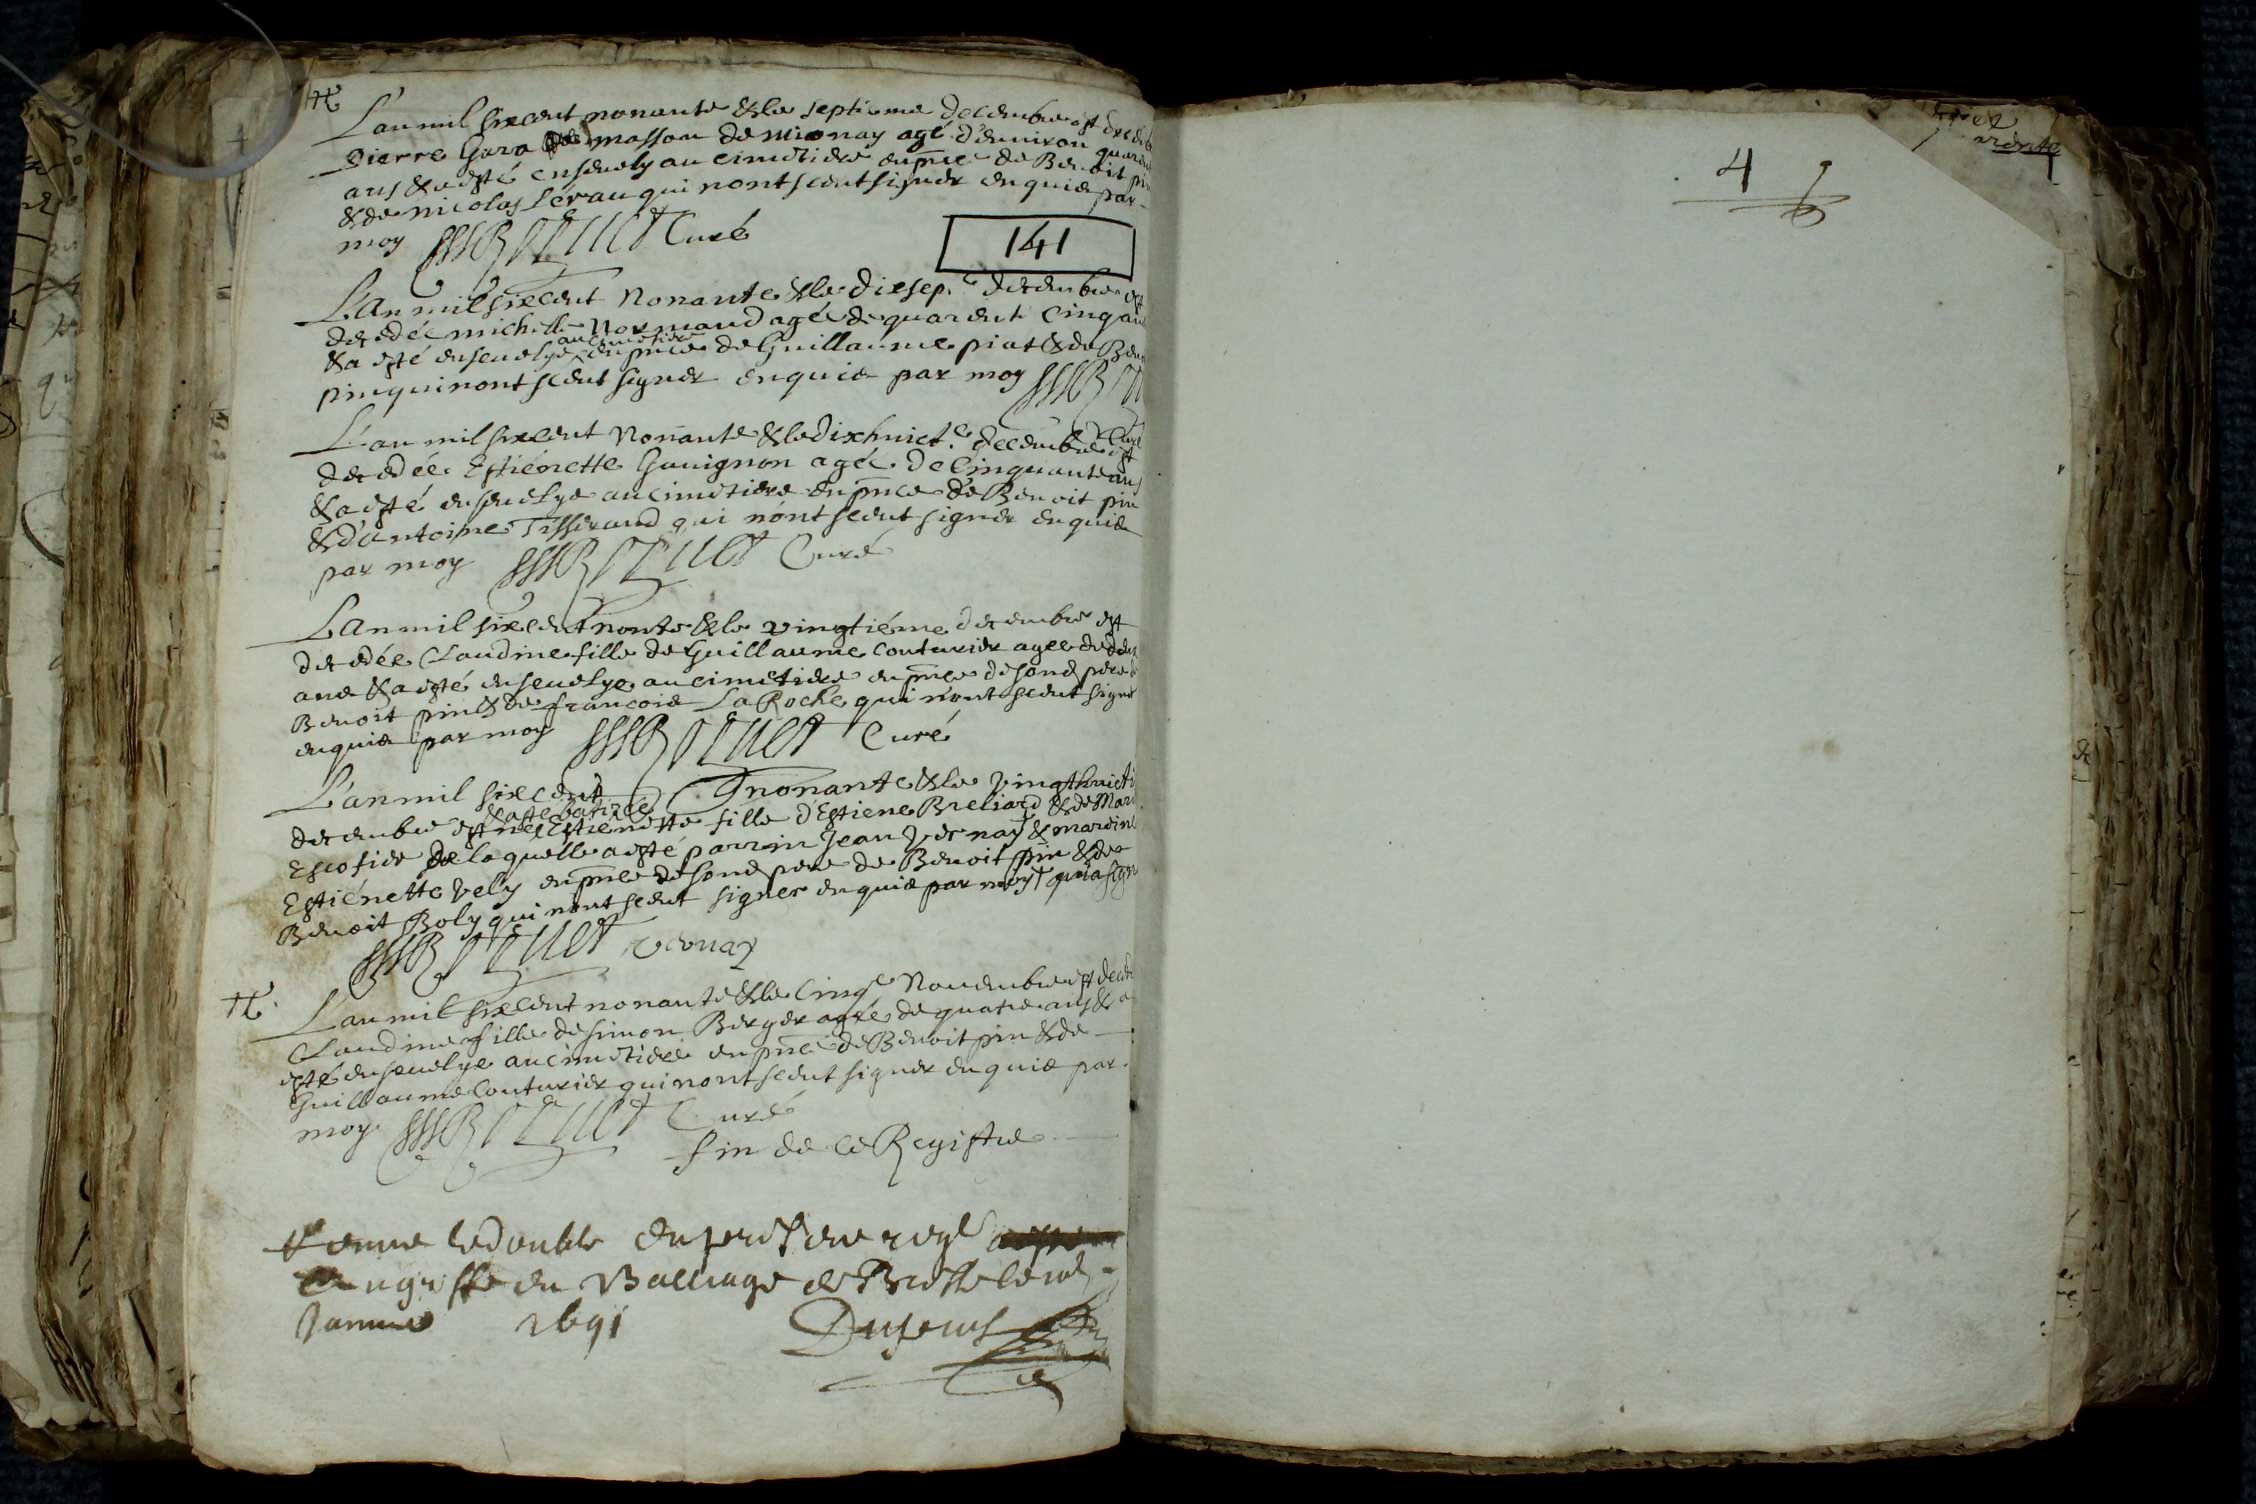 L'an mil six cent nonante & le septieme decembre est decede
Pierre Gara masson de mionay agé d'environ quarent
ans & a esté ensevely au cimetiere en pnce de Benoit pin
& de nicolas qui n'ont sceut signer enquis par
moy Curé
141
L'an mil six cent Nonante & le diesept.e decembre est
decedée michelle Normand agée de quarente cinq ans
au cimetiere
& a esté ensevelye en pnce de Guillaume piat & de Benoit
pin qui n'ont sceut signer enquis par moy
Curé
L'an mil six cent Nonante & le dixhuict.e decembre est
decedée Estienette Gavignon agée de Cinquante ans
& a esté ensevelye au cimetiere en pnce de Benoit pin
& d'Antoine Tisserand qui n'ont sceut signer enquis
par moy Curé
L'an mil six cent nonte & le vingtiéme decembre est
decedée Claudine fille de Guillaume Couturier agee de deux
ans & a esté ensevelye au cimetiere en pnce de sond pere de
Benoit pin & de francois LaRoche qui n'ont sceut signer
enquis par moy Curé
L'an mil six cent nonante & le vingthuicti
& a esté batizée
decembre est née Estienette fille d'Estiene Breliard & de Mari
Escofier de laquelle a esté parrin Jean Vernay & mareine
Estiénette Vely en pnce de sond pere de Benoit pin & de
Benoit Boly qui n'ont sceut signer enquis par moy qui a signé
Vernay
L'an mil six cent nonante & le cinq.e Novembre est decede
Claudine fille de simon Berger agée de quatre ans & a
esté ensevelye au cimetiere en pnce de Benoit pin & de
Guillaume Couturier qui n'ont sceut signer enquis par
moy Curé
fin de ce Registre
le double du
du Balliage de Bresse le
Janvier 1691
4